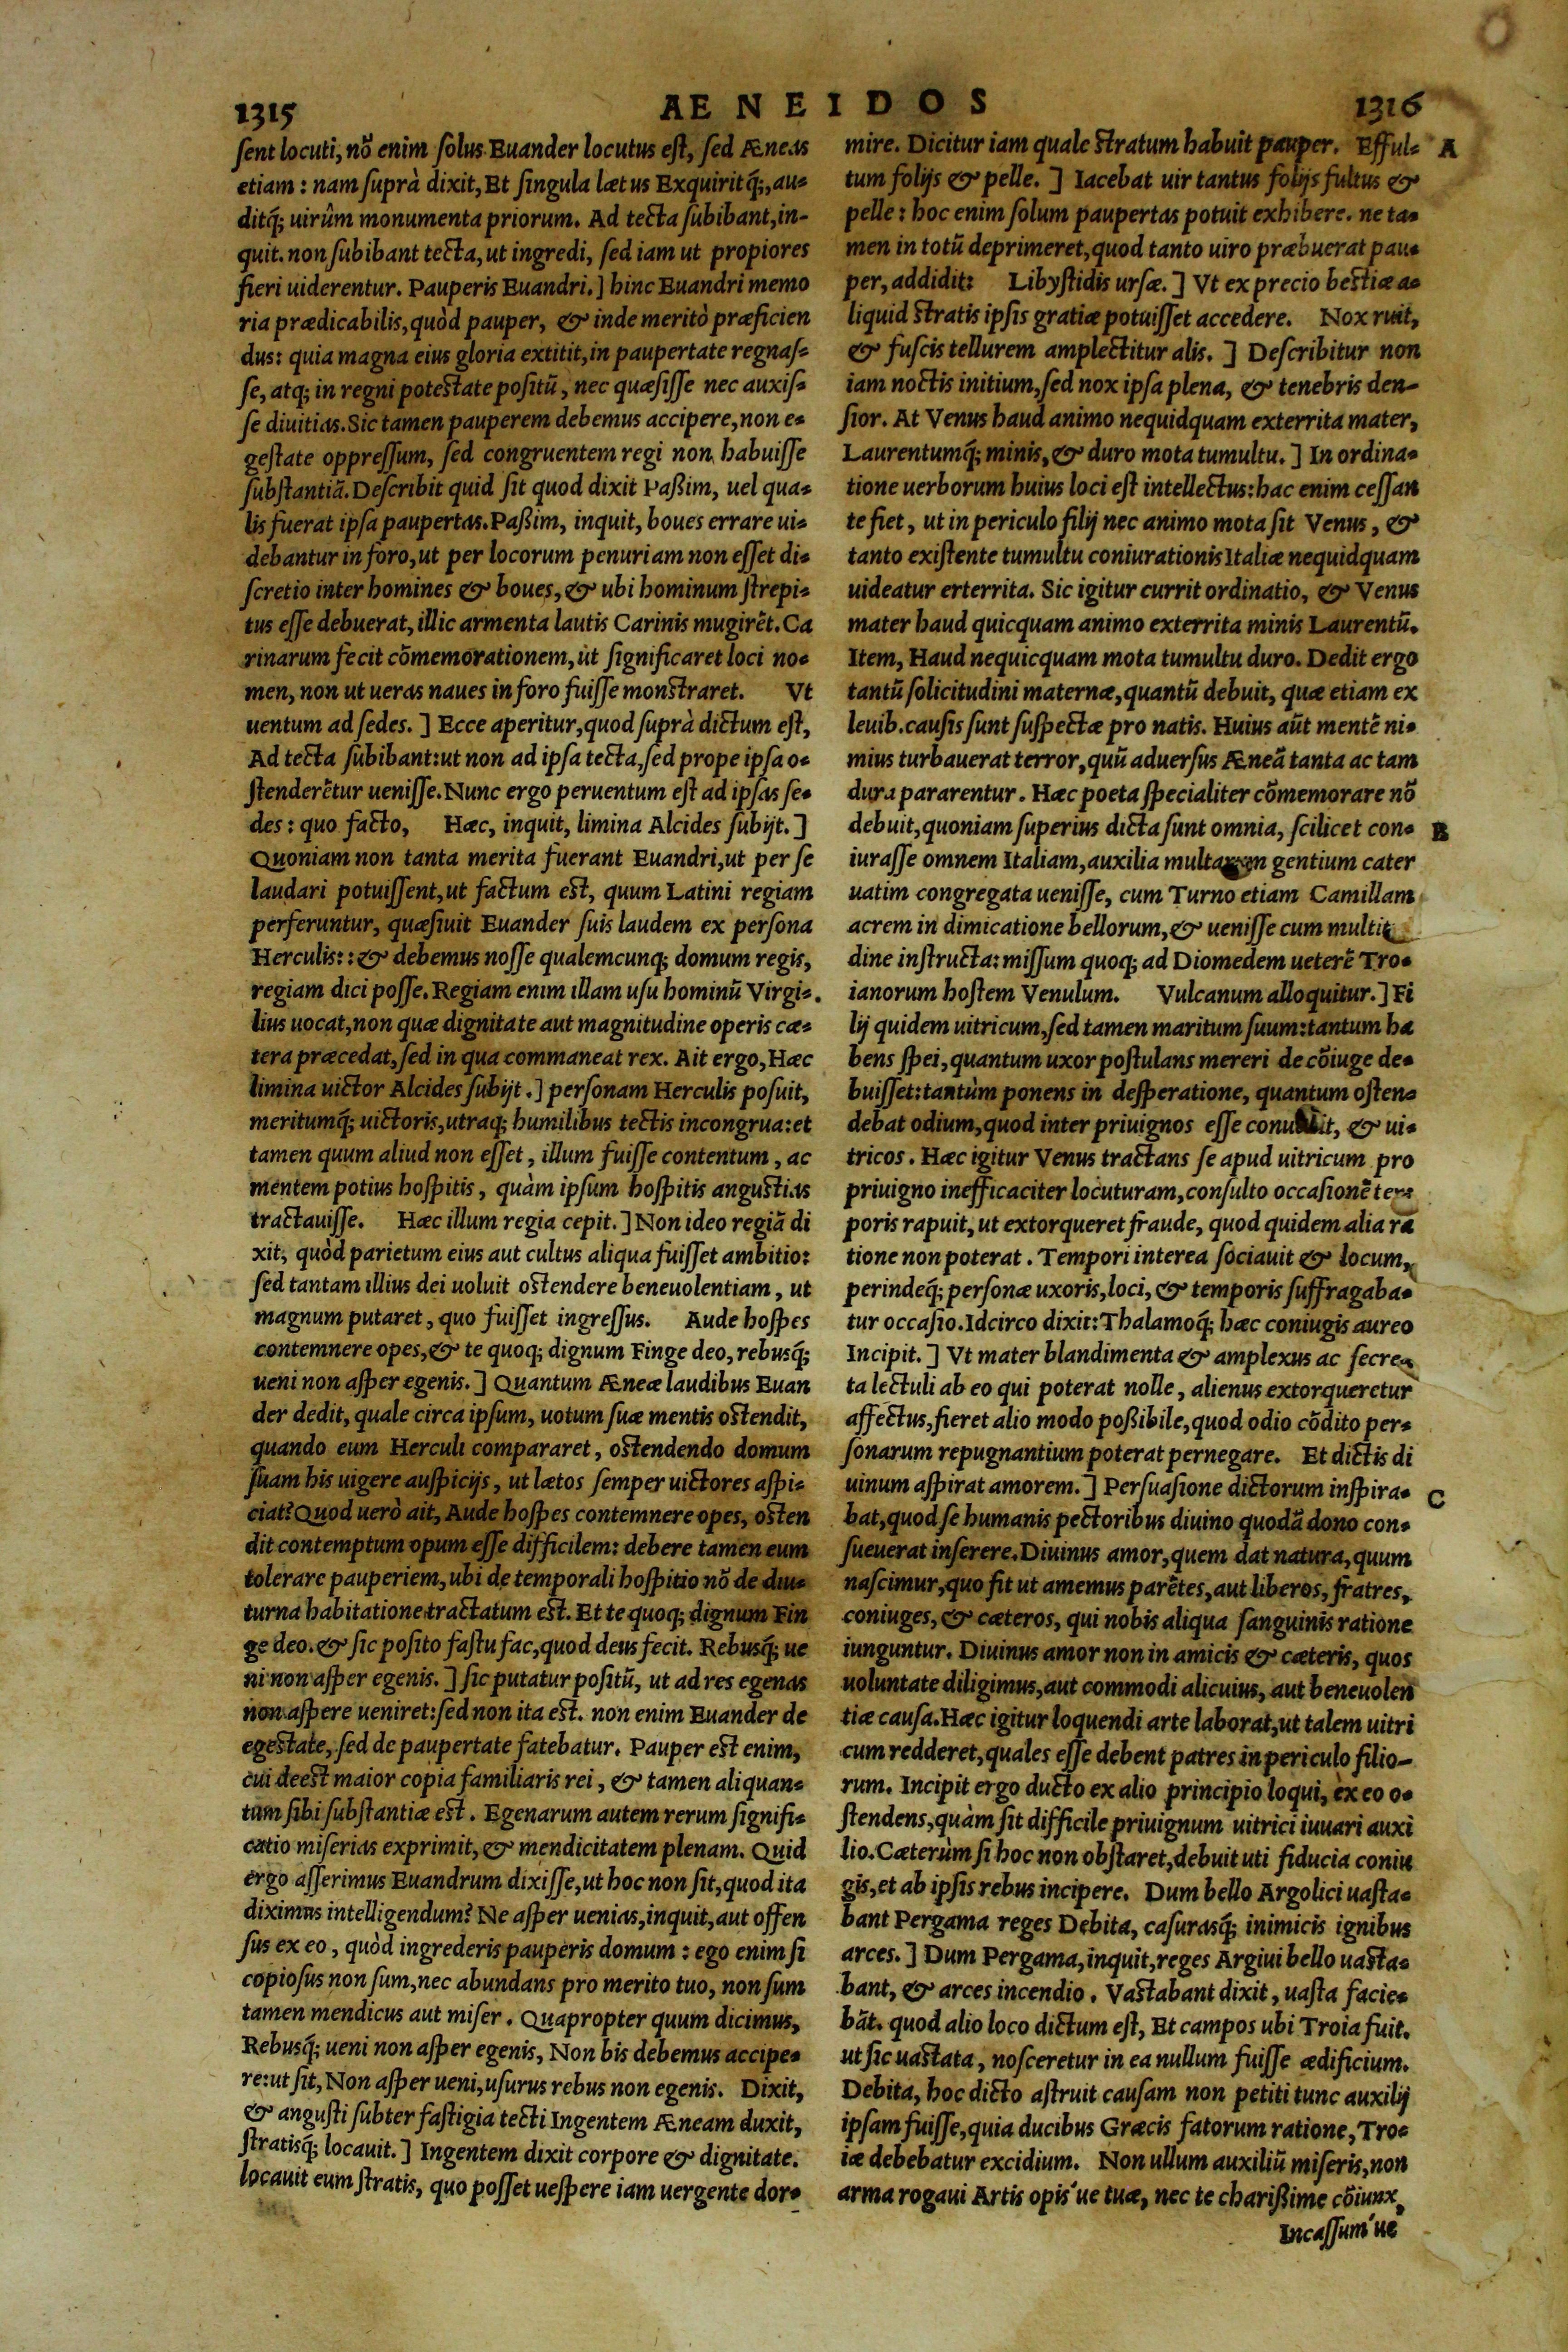 1315 AENEIDOS 1316
sent locuti, nõ enim solus Euander locutus est, sed Æneas
etiam: nam suprà dixit, Et singula lætus Exquiritq́;, au-
ditq́; uirûm monumenta priorum. Ad tecta subibant, in-
quit. non subibant tecta, ut ingredi, sed iam ut propiores
fieri uiderentur. Pauperis Euandri.] hinc Euandri memo
ria prædicabilis, quòd pauper, & inde meritò præficien
dus: quia magna eius gloria extitit, in paupertate regnas-
se, atq; in regni potestate positũ, nec quæsisse nec auxis-
se diuitias. Sic tamen pauperem debemus accipere, non e-
gestate oppressum, sed congruentem regi non habuisse
substantiã. Describit quid sit quod dixit Paßim, uel qua-
lis fuerat ipsa paupertas. Paßim, inquit, boues errare ui-
debantur in foro, ut per locorum penuriam non esset di-
scretio inter homines & boues, & ubi hominum strepi-
tus esse debuerat, illic armenta lautis Carinis mugirẽt. Ca
rinarum fecit cõmemorationem, ut significaret loci no-
men, non ut ueras naues in foro fuisse monstraret. Vt
uentum ad sedes.] Ecce aperitur, quod suprà dictum est,
Ad tecta subibant: ut non ad ipsa tecta, sed prope ipsa o-
stenderẽtur uenisse. Nunc ergo peruentum est ad ipsas se-
des: quo facto, Hæc, inquit, limina Alcides subijt.]
Quoniam non tanta merita fuerant Euandri, ut per se
laudari potuissent, ut factum est, quum Latini regiam
perferuntur, quæsiuit Euander suis laudem ex persona
Herculis:: & debemus nosse qualemcunq; domum regis,
regiam dici posse. Regiam enim illam usu hominũ Virgi-
lius uocat, non quæ dignitate aut magnitudine operis cæ-
tera præcedat, sed in qua commaneat rex. Ait ergo, Hæc
limina uictor Alcides subijt.] personam Herculis posuit,
meritumq́; uictoris, utraq; humilibus tectis incongrua: et
tamen quum aliud non esset, illum fuisse contentum, ac
mentem potius hospitis, quàm ipsum hospitis angustias
tractauisse. Hæc illum regia cepit.] Non ideo regiã di
xit, quòd parietum eius aut cultus aliqua fuisset ambitio:
sed tantam illius dei uoluit ostendere beneuolentiam, ut
magnum putaret, quo fuisset ingressus. Aude hospes
contemnere opes, & te quoq; dignum Finge deo, rebusq́;
ueni non asper egenis.] Quantum Æneæ laudibus Euan
der dedit, quale circa ipsum, uotum suæ mentis ostendit,
quando eum Herculi compararet, ostendendo domum
suam his uigere auspicijs, ut lætos semper uictores aspi-
ciat? Quod uerò ait, Aude hospes contemnere opes, osten
dit contemptum opum esse difficilem: debere tamen eum
tolerare pauperiem, ubi de temporali hospitio nõ de diu-
turna habitatione tractatum est. Et te quoq; dignum Fin
ge deo. & sic posito fastu fac, quod deus fecit. Rebusq́; ue
ni non asper egenis.] sic putatur positũ, ut ad res egenas
non aspere ueniret: sed non ita est. non enim Euander de
egestate, sed de paupertate fatebatur. Pauper est enim,
cui deest maior copia familiaris rei, & tamen aliquan-
tum sibi substantiæ est. Egenarum autem rerum signifi-
catio miserias exprimit, & mendicitatem plenam. Quid
ergo asserimus Euandrum dixisse, ut hoc non sit, quod ita
diximus intelligendum? Ne asper uenias, inquit, aut offen
sus ex eo, quòd ingrederis pauperis domum: ego enim si
copiosus non sum, nec abundans pro merito tuo, non sum
tamen mendicus aut miser. Quapropter quum dicimus,
Rebusq́; ueni non asper egenis, Non bis debemus accipe-
re: ut sit, Non asper ueni, usurus rebus non egenis. Dixit,
& angusti subter fastigia tecti Ingentem Æneam duxit,
stratisq́; locauit.] Ingentem dixit corpore & dignitate.
locauit eum stratis, quo posset uespere iam uergente dor-
mire. Dicitur iam quale stratum habuit pauper. Efful- A
tum folijs & pelle.] Iacebat uir tantus folijs fultus &
pelle: hoc enim solum paupertas potuit exhibere. ne ta-
men in totũ deprimeret, quod tanto uiro præbuerat pau-
per, addidit: Libystidis ursæ.] Vt ex precio bestiæ a-
liquid stratis ipsis gratiæ potuisset accedere. Nox ruit,
& fuscis tellurem amplectitur alis.] Describitur non
iam noctis initium, sed nox ipsa plena, & tenebris den-
sior. At Venus haud animo nequidquam exterrita mater,
Laurentumq́; minis, & duro mota tumultu.] In ordina-
tione uerborum huius loci est intellectus: hac enim cessan
te fiet, ut in periculo filij nec animo mota sit Venus, &
tanto existente tumultu coniurationis Italiæ nequidquam
uideatur erterrita. Sic igitur currit ordinatio, & Venus
mater haud quicquam animo exterrita minis Laurentũ.
Item, Haud nequicquam mota tumultu duro. Dedit ergo
tantũ solicitudini maternæ, quantũ debuit, quæ etiam ex
leuib. causis sunt suspectæ pro natis. Huius aũt mentẽ ni-
mius turbauerat terror, quũ aduersus Æneã tanta ac tam
dura pararentur. Hæc poeta specialiter cõmemorare nõ
debuit, quoniam superius dicta sunt omnia, scilicet con- B
iurasse omnem Italiam, auxilia gentium cater
uatim congregata uenisse, cum Turno etiam Camillam
acrem in dimicatione bellorum, & uenisse cum multit
dine instructa: missum quoq; ad Diomedem ueterẽ Tro-
ianorum hostem Venulum. Vulcanum alloquitur.] Fi
lij quidem uitricum, sed tamen maritum suum: tantum ha
bens spei, quantum uxor postulans mereri de cõiuge de-
buisset: tantùm ponens in desperatione, quantum osten-
debat odium, quod inter priuignos esse , & ui-
tricos. Hæc igitur Venus tractans se apud uitricum pro
priuigno inefficaciter locuturam, consulto occasionẽ tem
poris rapuit, ut extorqueret fraude, quod quidem alia ra
tione non poterat. Tempori interea sociauit & locum,
perindeq́; personæ uxoris, loci, & temporis suffragaba-
tur occasio. Idcirco dixit: Thalamoq́; hæc coniugis aureo
Incipit.] Vt mater blandimenta & amplexus ac secre-
ta lectuli ab eo qui poterat nolle, alienus extorqueretur
affectus, fieret alio modo poßibile, quod odio cõdito per-
sonarum repugnantium poterat pernegare. Et dictis di
uinum aspirat amorem.] Persuasione dictorum inspira- C
bat, quod se humanis pectoribus diuino quodã dono con-
sueuerat inserere. Diuinus amor, quem dat natura, quum
nascimur, quo fit ut amemus parẽtes, aut liberos, fratres,
coniuges, & cæteros, qui nobis aliqua sanguinis ratione
iunguntur. Diuinus amor non in amicis & cæteris, quos
uoluntate diligimus, aut commodi alicuius, aut beneuolen
tiæ causa. Hæc igitur loquendi arte laborat, ut talem uitri
cum redderet, quales esse debent patres in periculo filio-
rum. Incipit ergo ducto ex alio principio loqui, ex eo o-
stendens, quàm sit difficile priuignum uitrici iuuari auxi
lio. Cæterùm si hoc non obstaret, debuit uti fiducia coniu
gis, et ab ipsis rebus incipere. Dum bello Argolici uasta-
bant Pergama reges Debita, casurasq́; inimicis ignibus
arces.] Dum Pergama, inquit, reges Argiui bello uasta-
bant, & arces incendio. Vastabant dixit, uasta facie-
bãt. quod alio loco dictum est, Et campos ubi Troia fuit.
ut sic uastata, nosceretur in ea nullum fuisse ædificium.
Debita, hoc dicto astruit causam non petiti tunc auxilij
ipsam fuisse, quia ducibus Græcis fatorum ratione, Tro-
iæ debebatur excidium. Non ullum auxiliũ miseris, non
arma rogaui Artis opis'ue tuæ, nec te charißime cõiunx,
Incassum'ue